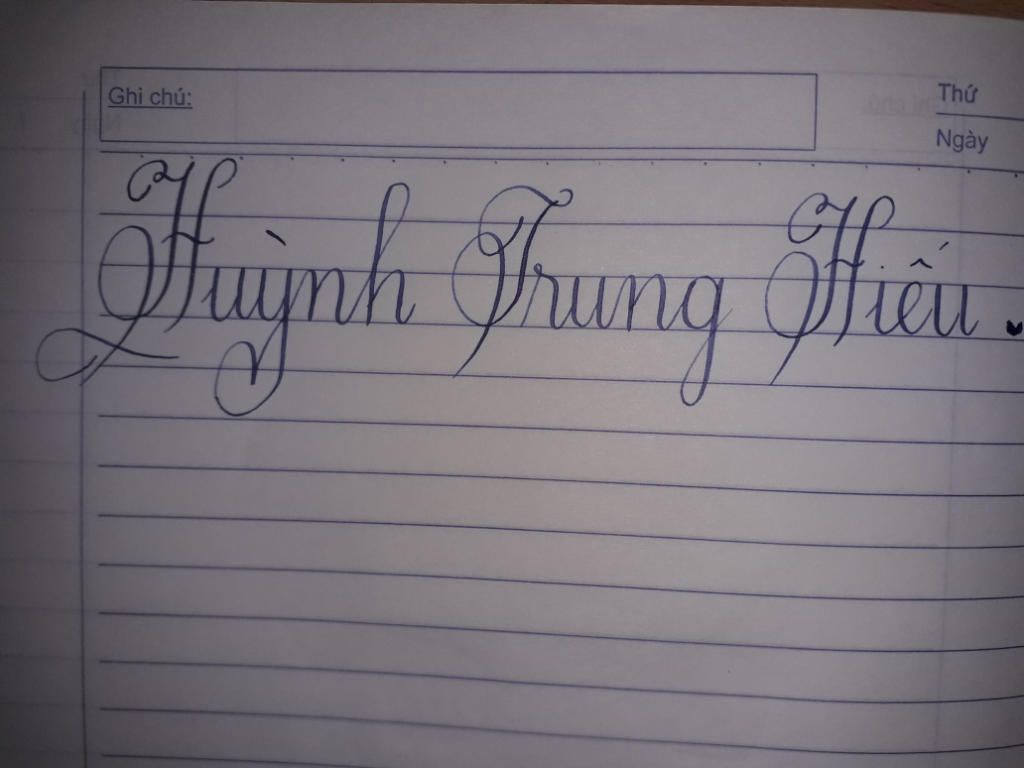 Ghi chú:
Thứ
Ngày
Huỳnh Trung Hiếu.